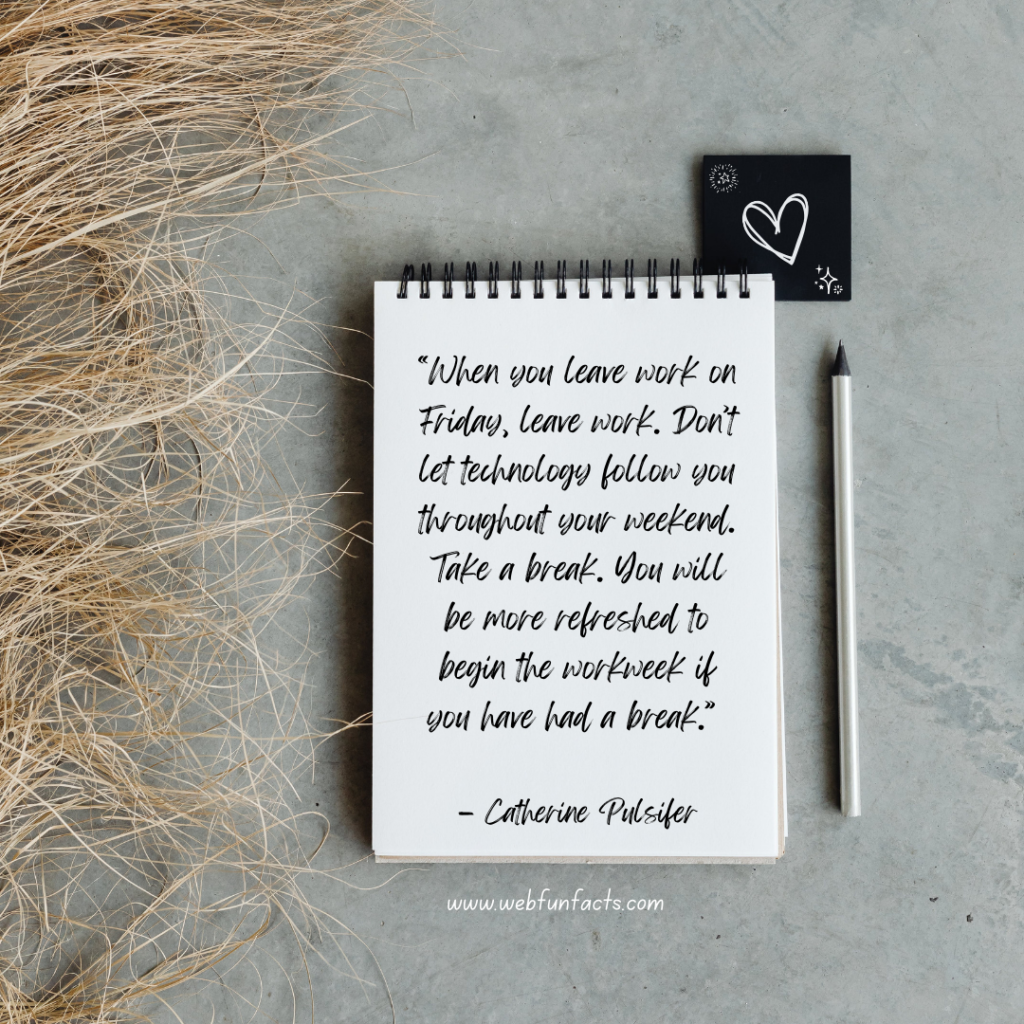 “When you leave work on
Friday, leave work. Don’t
let technology follow you
throughout your weekend.
Take a break. You will
be more refreshed to
begin the workweek if
you have had a break.”
– Catherine Pulsifer
www.webfunfacts.com